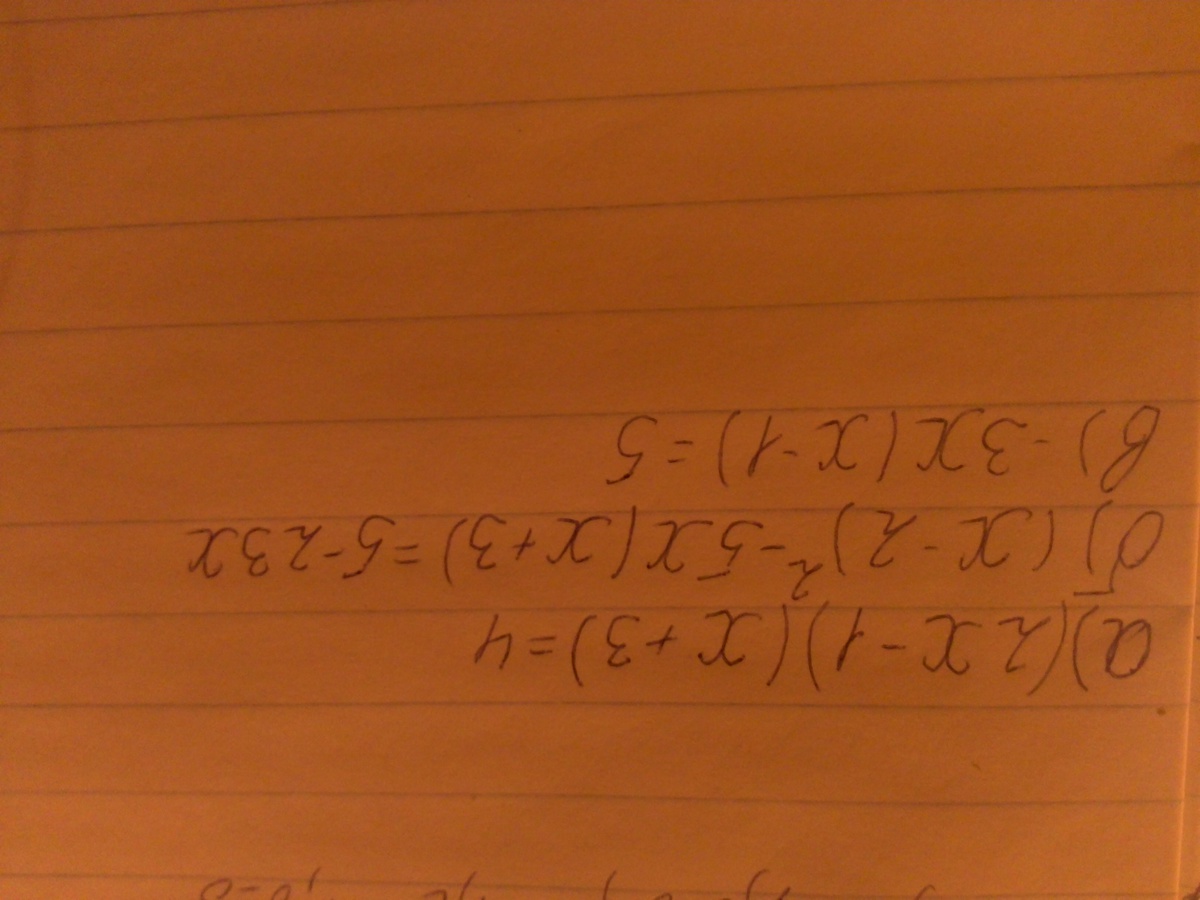 а) (2x-1)(x+3)=4
б) (x-2)²-5x(x+3)=5-23x
в) -3x(x-1)=5